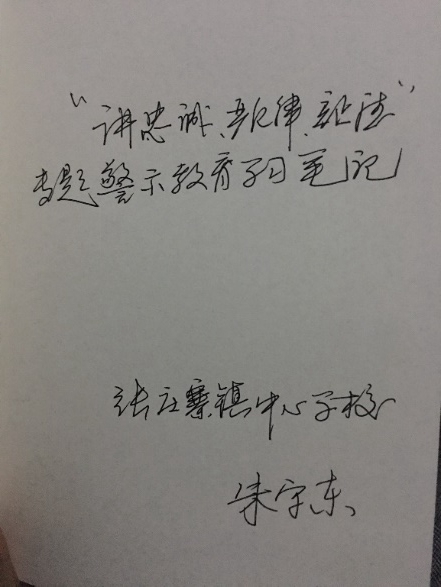 “讲忠诚、严纪律、立政德”
专题警示教育学习笔记
张庄寨镇中心学校
朱守东